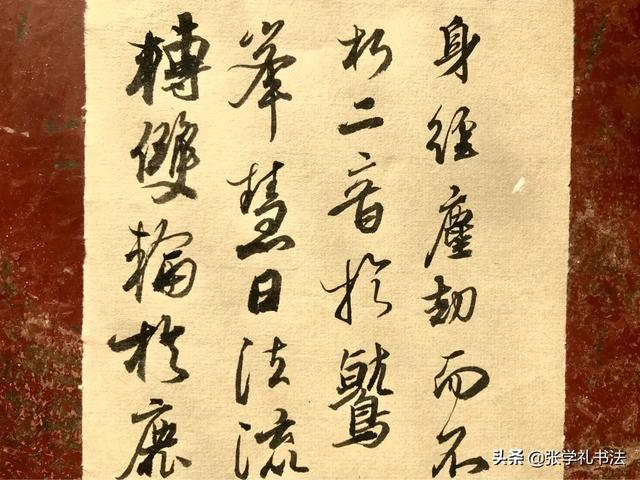 身經塵劫而不
朽二音於鷲
峯慧日法流
轉雙輪於鹿
头条 @张学礼书法